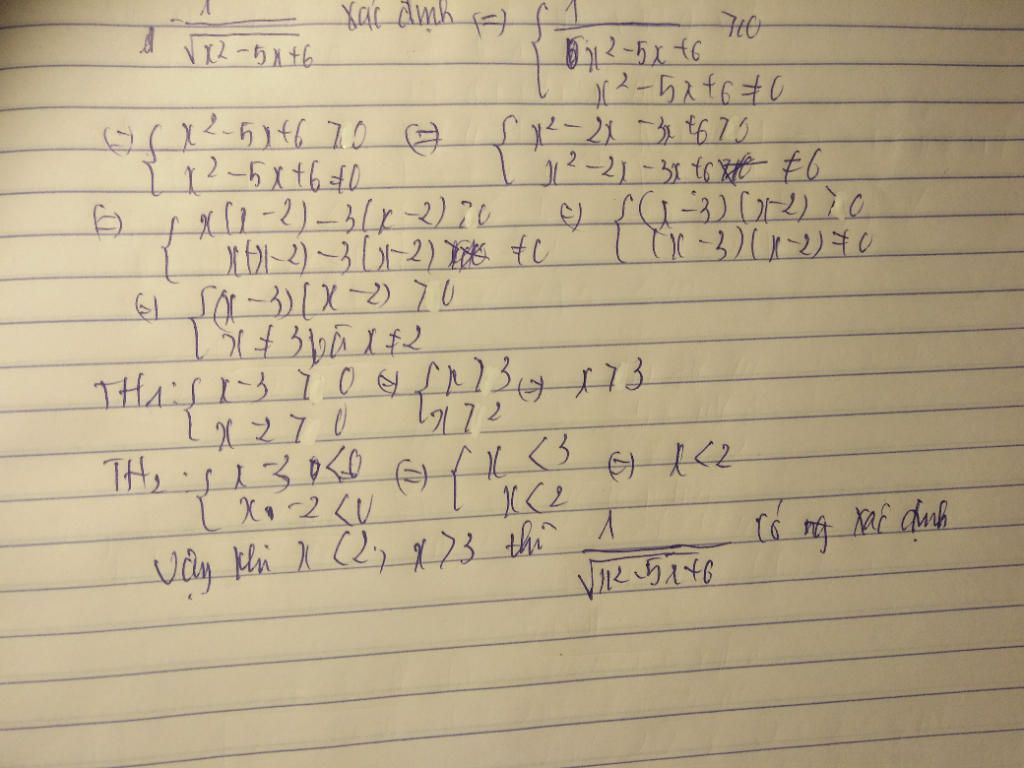 1/√(x²-5x+6) xác định (=) { 1/(x²-5x+6) ≥0
x²-5x+6≠0
(=) { x²-5x+6 ≥0 (=) { x²-2x-3x+6≥0
x²-5x+6≠0 x²-2x-3x+6 ≠6
(=) { x(x-2)-3(x-2)≥0 (=) { (x-3)(x-2)≥0
x(x-2)-3(x-2) ≠0 (x-3)(x-2)≠0
(=) { (x-3)(x-2) >0
x≠3 và x≠2
TH1: { x-3 >0 (=) { x>3 (=) x>3
x-2>0 x>2
TH2: { x-3<0 (=) { x<3 (=) x<2
x-2<0 x<2
Vậy khi x<2; x>3 thì 1/√(x²-5x+6) có ng xác định